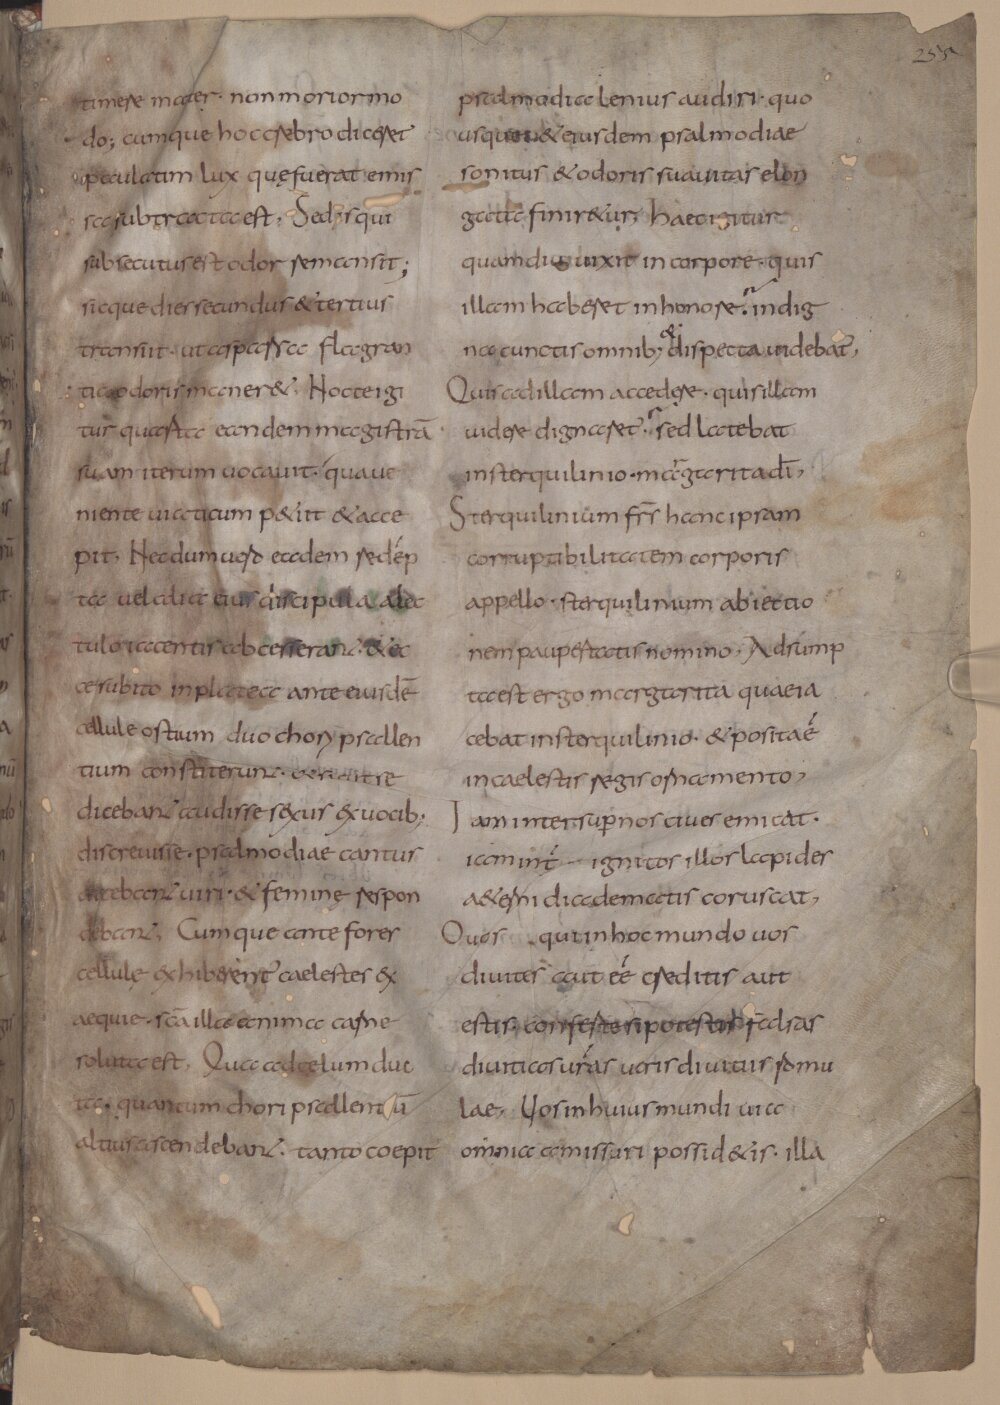 255a
timere mater· non morior mo
do; cumque hoc crebro diceret
peculatim lux quę fuerat emis
sa subtracta est, Sed is qui
subsecutus est odor remansit;
sicque dies secundus & tertius
transiit· ut aspersa flagran
tia odoris maner&, Nocte igi
tur quarta eandem magistrā
suam iterum vocavit· qua ve
niente viaticum p&iit & acce
pit, Necdum vero eadem redēp
ta vel alia eius discipula a lec
tulo iacentis abcesseran̄· & ec
ce subito in platea ante eiusdē
cellule ostium duo chori psallen
tium constiterun̄·
diceban̄ audisse sexus ex vocib;
discrevisse· psalmodiae cantus
dicebant viri· & femine respon
deban̄, Cumque ante fores
cellulę exhiberent̄ caelestes ex
aequie· sc̄a illa anima carne
soluta est, Qua ad celum duc
ta· quantum chori psallentiū
altius ascendeban̄· tanto coepit
psalmodia lenius audiri· quo
usque & eiusdem psalmodiae
sonitus & odoris suavitas elon
gata finir&ur, haec igitur
quamdiu vixit in corpore· quis
illam haberet in honore· indig
na cunctis omnib; & dispecta videbat̄,
Quis ad illam accedere· quis illam
videre dignaret· sed latebat
in sterquilinio· margarita dī,
Sterquilinium fr̄s hanc ipsam
corruptibilitatem corporis
appello· sterquilinium abiectio
nem paupertatis nomino, Adsump
ta est ergo margarita quae ia
cebat in sterquilinio· & posita ē
in caelestis regis ornamento,
Iam inter supernos cives emicat·
iam int̄ ignitos illos lapides
a&erni diadematis coruscat,
Quos qui in hoc mundo vos
divites aut eē creditis aut
estis· conferte si potestis falsas
divitias vr̄as veris divitiis romu
lae, Vos in huius mundi via
omnia amissuri possid&is· illa